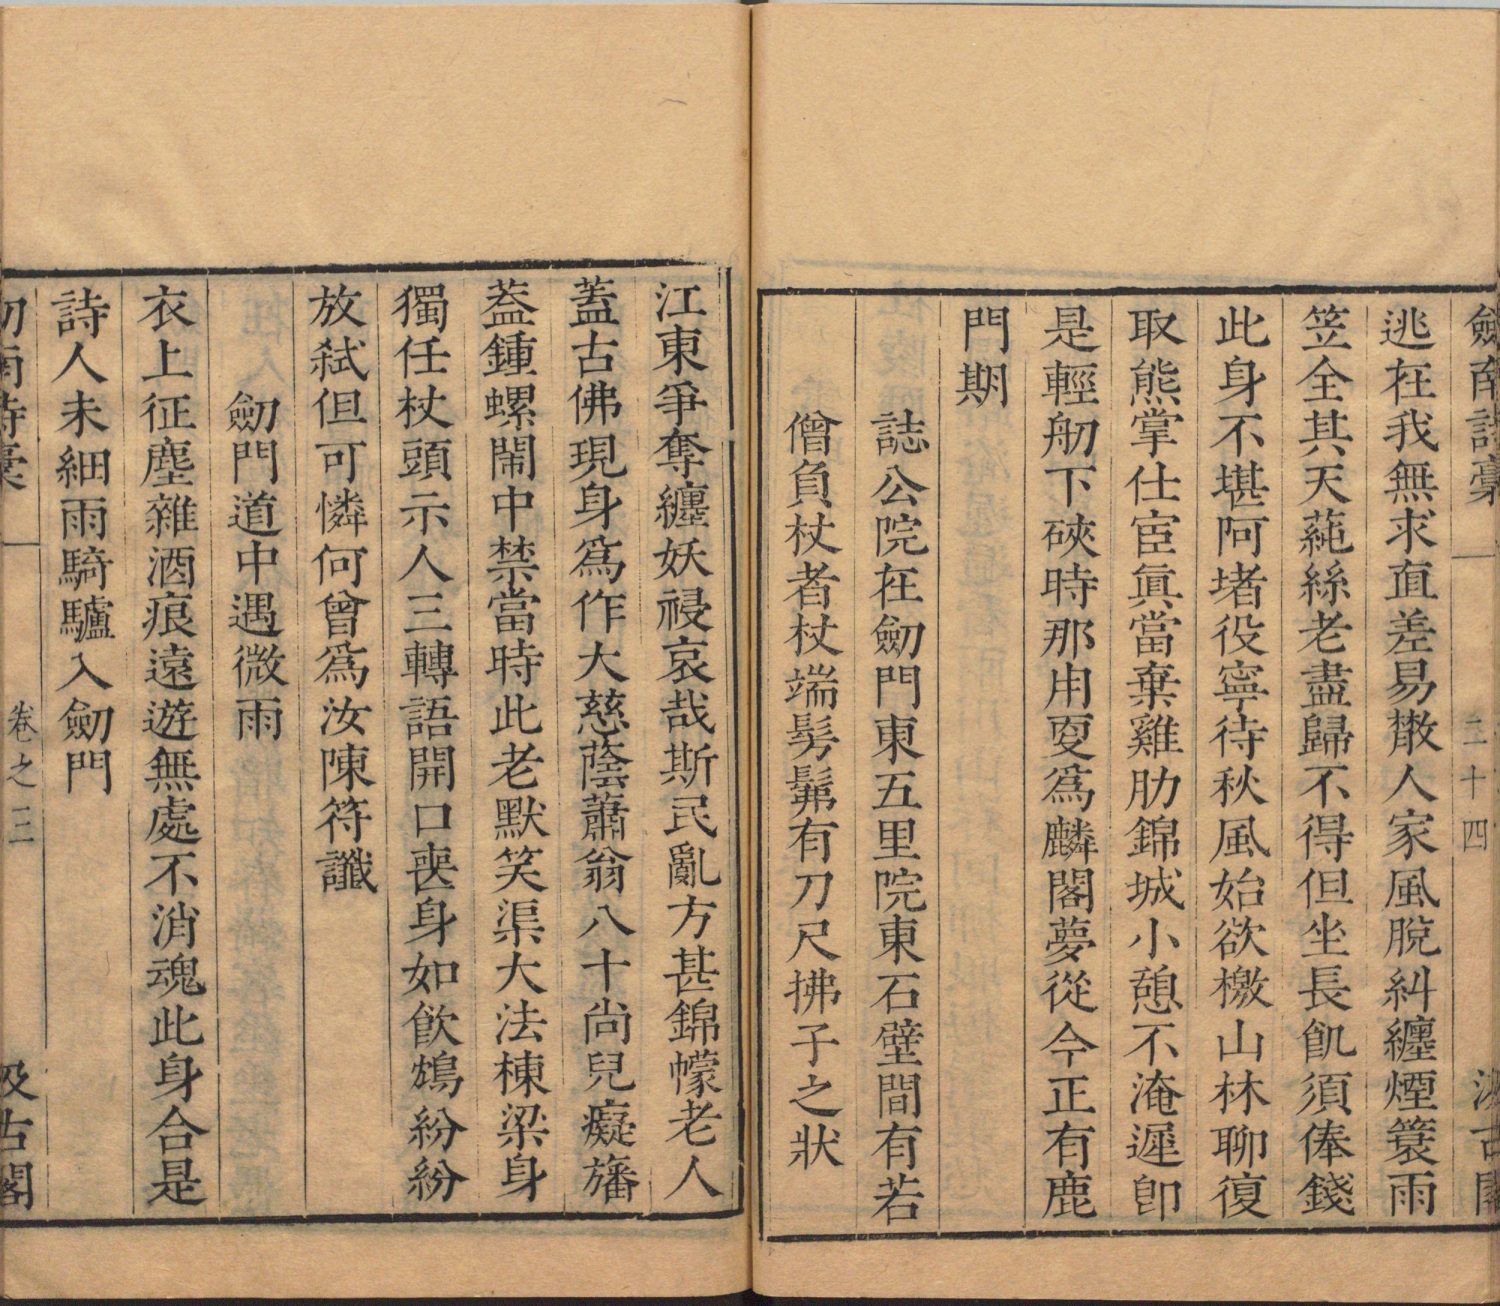 劔南詩稾 二十四 汲古閣
逃在我無求直差易散人家風脫糾纏煙簑雨
笠全其天蒓絲老盡歸不得但坐長飢須俸錢
此身不堪阿堵役寧待秋風始欲檄山林聊復
取熊掌仕宦眞當棄雞肋錦城小憩不淹遲卽
是輕舠下硤時那用更爲麟閣夢從今正有鹿
門期
誌公院在劔門東五里院東石壁間有若
僧負杖者杖端髣髴有刀尺拂子之狀
江東爭奪纏妖祲哀哉斯民亂方甚錦幪老人
蓋古佛現身爲作大慈蔭蕭翁八十尚兒癡旛
葢鍾螺鬧中禁當時此老默笑渠大法棟梁身
獨任杖頭示人三轉語開口喪身如飮鴆紛紛
放弑但可憐何曾爲汝陳符讖
劔門道中遇微雨
衣上征塵雜酒痕遠遊無處不消魂此身合是
詩人未細雨騎驢入劔門
劔南詩稾 卷之三 汲古閣